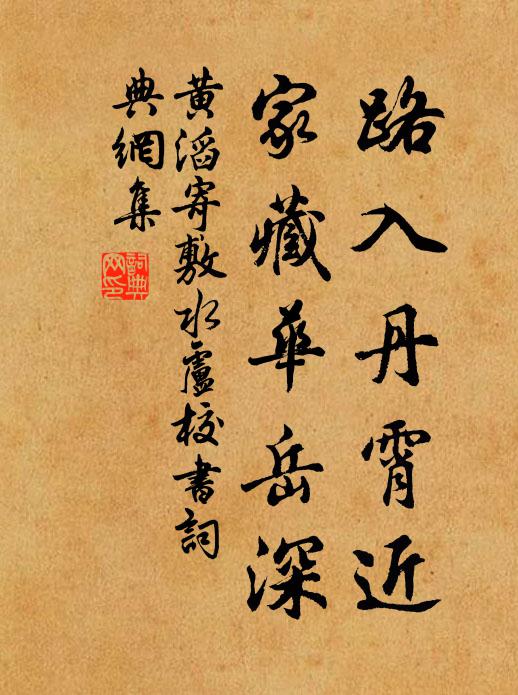 路入丹霄近
家藏華岳深
黄滔寄敷水盧校書詞
典網集
詞典
网印